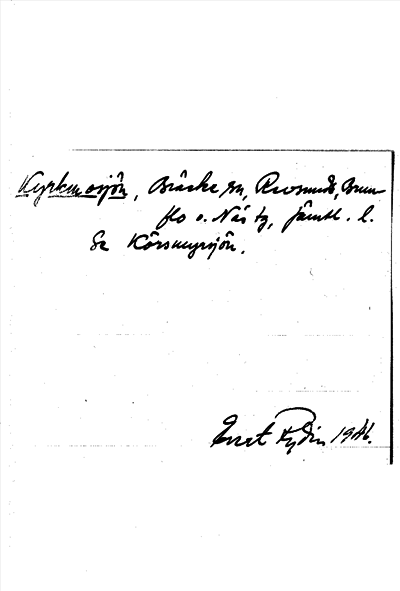 Kyrkmosjön, Bräcke sn, Revsunds, Brun-
flo o. Näs tg, Jämtl. l.
Se Körsmyrsjön.
Evert Rydin 1946.